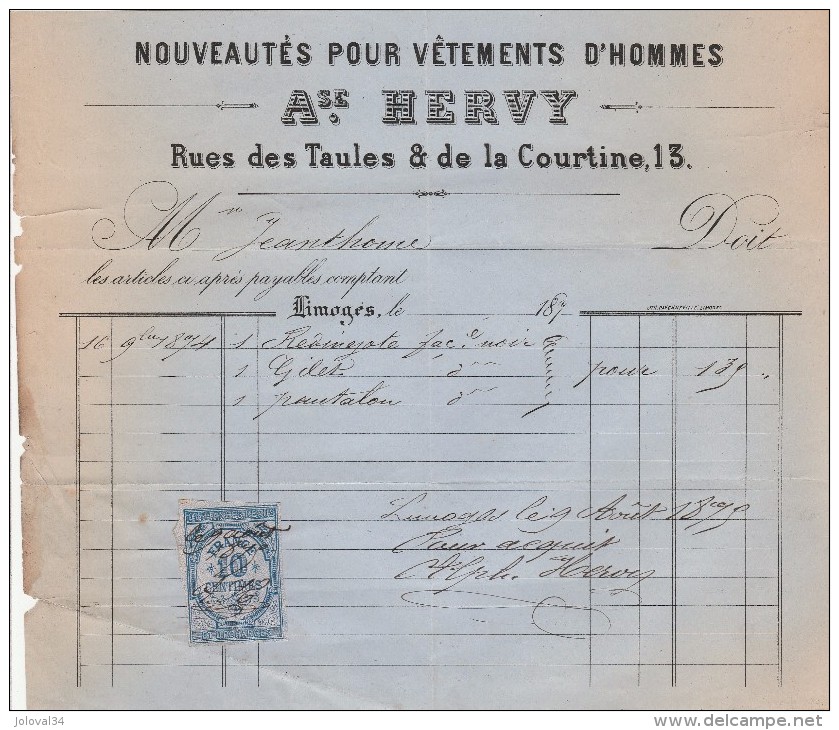 NOUVEAUTÉS POUR VÊTEMENTS D'HOMMES
ASE. HERVY
Rues des Taules & de la Courtine, 13.
M Jeanthome Doit
les articles ci après payables comptant
Limoges, le 187
16 9bre 1874 1 noir
1 Gilet d° pour 139
1 pantalon d°
Limoges le 9 Août 1875
Pour acquit
Alph. Hervy
FRANCE
10
CENTIMES
joloval34
www.delcampe.net